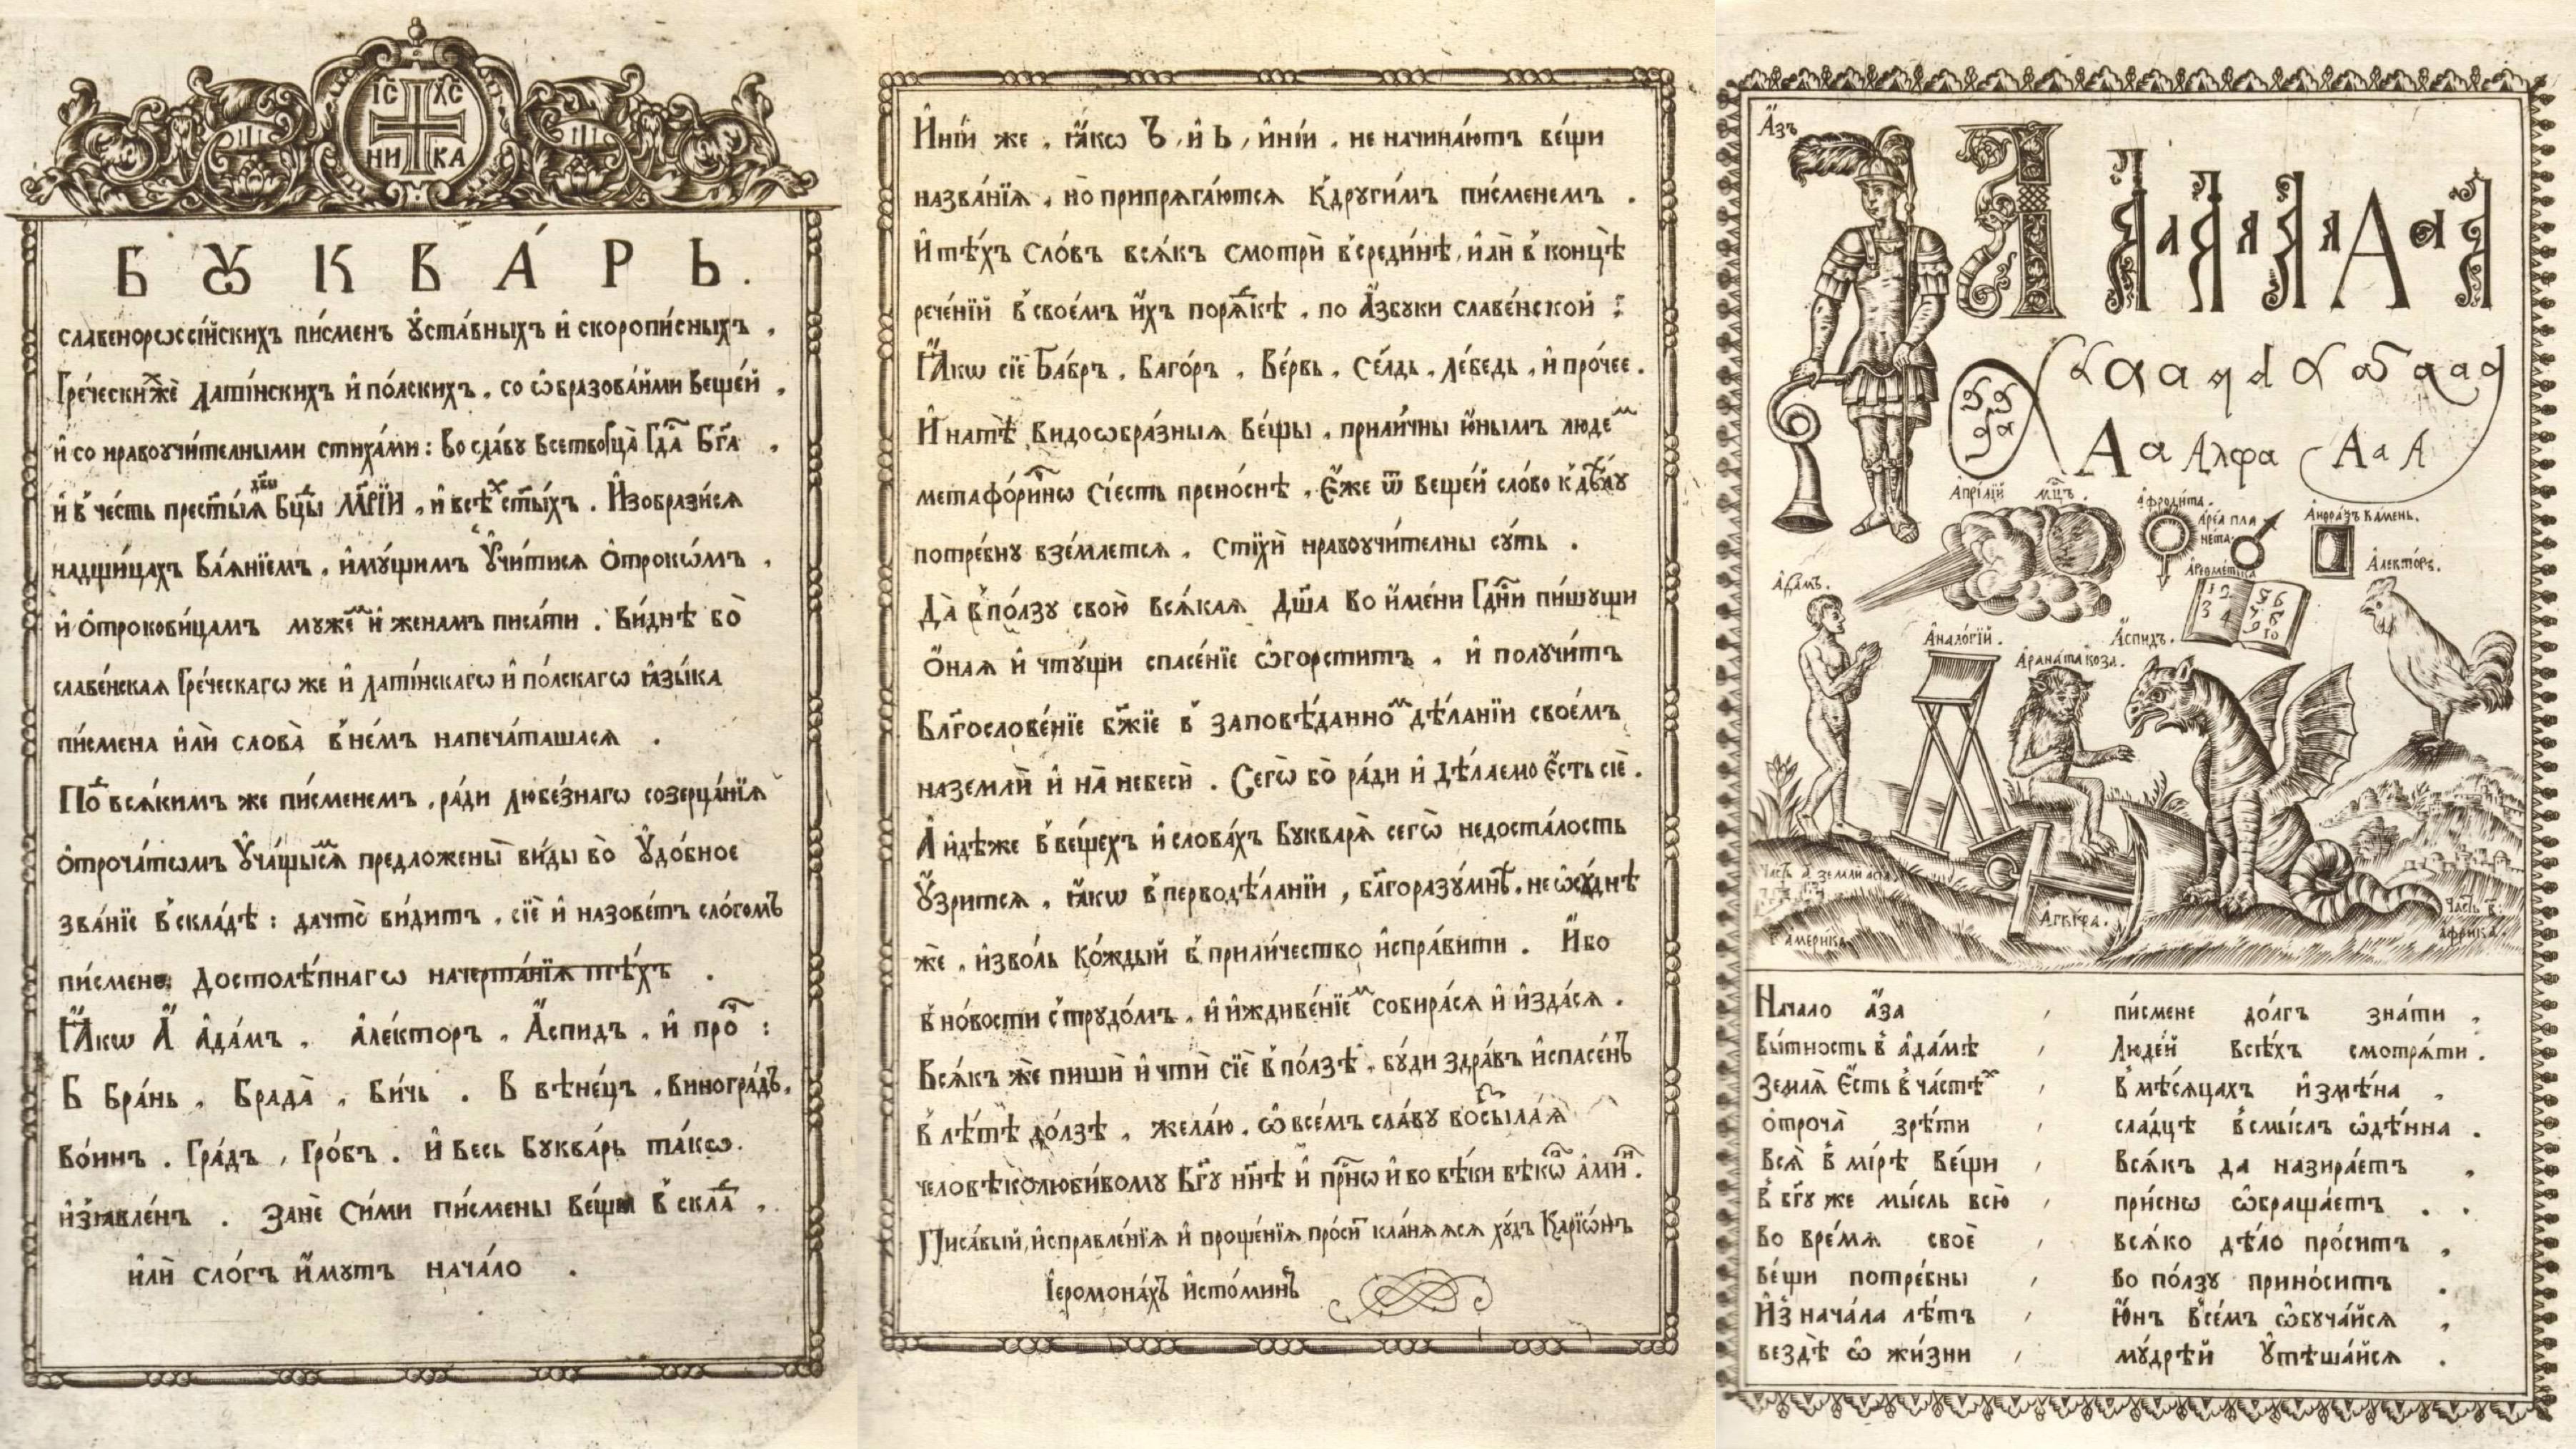 І҃С Х҃С
НИ КА
БꙋКВА́РЬ.
славеноросси́йскихъ пи́сменъ ᲂу҆ста́вныхъ и҆ скоропи́сныхъ ,
Гре́ческиⷯжѐ лати́нскихъ и҆ по́лскихъ , со ѡ҆бразова́нми веще́й ,
и҆ со нравоучи́телными стиха́ми : Во сла́ву всетво
и҆ в че́сть
надщи́цахъ ва́ѧнїемъ , и҆мꙋ́щимъ ᲂу҆чи́тисѧ ѻ҆трокѡ́мъ ,
и҆ ѻ҆трокови́цамъ мꙋже́мъ и҆ женамъ писа́ти . Ви́днѣ бо̀
славе́нскаѧ Гре́ческагѡ же и҆ лати́нскагѡ и҆ по́лскагѡ ꙗ҆зы́ка
пи́смена и҆лѝ слова̀ в не́мъ напеча́ташасѧ .
Поⷣ всѧ́кимъ же пи́сменемъ , ра́ди любе́знагѡ созерца́нїѧ
ѻ҆троча́тѡмъ ᲂу҆ча́щымсѧ предложены̀ ви́ды во ᲂу҆до́бное
зва́нїе в скла́дѣ : да что̀ ви́дитъ , сїѐ и҆ назове́тъ сло́гомъ
пи́смене досто лѣ́пнагѡ начерта́нїѧ тѣ́хъ .
Ꙗ҆́кѡ А҆́ а҆да́мъ , а҆ле́кторъ , А҆́спидъ , и҆ проⷱ :
Б бра́нь , Брада̀ , би́чь . В вѣне́цъ , виногра́дъ ,
во́инъ . Гра́дъ , Гро́бъ . и҆ весь Буква́рь та́кѡ
и҆з̾ѧвле́нъ . Занѐ Си́ми пи́смены ве́щи в склаⷣ ,
и҆лѝ сло́гъ и҆́мꙋтъ нача́ло .
И҆ні́и же , ꙗ҆́кѡ Ъ , и҆ Ь , и҆ні́и , не начина́ютъ ве́щи
назва́нїѧ , но припрѧга́ютсѧ к дрꙋги́мъ пи́сменемъ .
И҆ тѣ́хъ сло́въ всѧ́къ смотрѝ в среди́нѣ , и҆лѝ в концѣ̀
рече́нїй в свое́мъ и҆́хъ порѧ́дкѣ , по А҆́збуки славе́нской :
Ꙗ҆́кѡ сїѐ Ба́бръ , Баго́ръ , Ве́рвь , Се́лдь , ле́бедь , и҆ про́чее .
И҆ на тѣ̀ видоѡбра́зныѧ ве́щы , прили́чны ю҆́нымъ людеⷨ
метафори́чнѡ сі́есть прено́снѣ , Е҆́же ѿ веще́й сло́во к дѣ́лꙋ
потре́бнꙋ взе́млетсѧ , стїхѝ нравоучи́телны сꙋ́ть .
Да̀ в по́лзꙋ свою̀ всѧ́каѧ дш҃а во и҆́мени Гдⷭ҇ни пи́шущи
ѻ҆́наѧ и҆ чтꙋ́щи спасе́нїе ѡ҆горстить , и҆ получи́тъ
Бл҃гослове́нїе бж҃їе в запо вѣ́данноⷨ дѣ́ланїи свое́мъ
наземлѝ и҆ на̀ небесѝ . Сегѡ̀ бо̀ ра́ди и҆ дѣ́лаемо Е҆́сть сїѐ .
А и҆дѣ́же в веще́хъ и҆ слова́хъ Букварѧ̀ сегѡ̀ недоста́лость
ᲂу҆́зритсѧ , ꙗ҆́кѡ в перводѣ́ланїи , бл҃горазу́мнѣ , не ѡ҆сꙋ́днѣ
жѐ , и҆зво́ль ко́ждый в прили́чество и҆спра́вити . И҆́бо
в но́вости с трꙋдо́мъ , и҆ и҆ждиве́нїеⷨ собира́сѧ и҆ и҆зда́сѧ .
Всѧ́къ жѐ пишѝ и҆ чтѝ сїѐ в по́лзѣ , бꙋ́ди здра́въ и҆ спасе́нъ
в лѣ́тѣ до́лзѣ , жела́ю , ѡ҆ все́мъ сла́вꙋ восыла́ѧ
человѣколюби́вомꙋ Бг҃ꙋ нн҃ѣ и҆ прⷭ҇нѡ и҆ во вѣ́ки вѣкѡ́въ а҆ми́нь .
Писа́вый , и҆справле́нїѧ и҆ проще́нїѧ про́ситъ кла́нѧѧсѧ хꙋ́дъ Карїѡ́нъ
І҆еромона́хъ и҆сто́минъ
А҆́зъ
А а Алфа А а А
А҆прі́лїй мцⷭ҇ъ .
А҆фроди́та .
А҆ре́а планета .
А҆нѳра́ѯъ ка́мень .
А҆ле́кторъ .
А҆риѳме́тика
1 2 3 4
А҆да́мъ .
А҆нало́гїй .
А҆́спидъ .
А҆рана́та коза .
Ча́сть а҃ земли́ а́сїа
А҆́гкѵра .
Ча́сть в҃ а҆́фрика .
а҆ме́рика
Начало а҆́за , пи́смене до́лгъ зна́ти ,
Бы́тность в а҆да́мѣ , Люде́й всѣ́хъ смотрѧ́ти .
Землѧ̀ Е҆́сть в ча́стѣⷯ , в мѣ́сѧцахъ и҆змѣ́на ,
ѻ҆троча̀ зрѣ́ти , сла́дцѣ в смы́слъ ѡ҆дѣ́нна .
Всѧ̀ в мі́рѣ ве́щи , всѧ́къ да назира́етъ ,
В бг҃ꙋ же мы́сль всю̀ , при́снѡ ѡ҆браща́етъ .
Во вре́мѧ своѐ , всѧ́ко дѣ́ло про́ситъ ,
ве́щи потре́бны , во по́лзꙋ прино́ситъ .
И҆з нача́ла лѣ́тъ , ю҆́нъ в се́мъ ѡ҆буча́йсѧ ,
вездѣ̀ ѡ҆ жи́зни , мꙋ́дрѣй ᲂу҆тѣша́йсѧ .